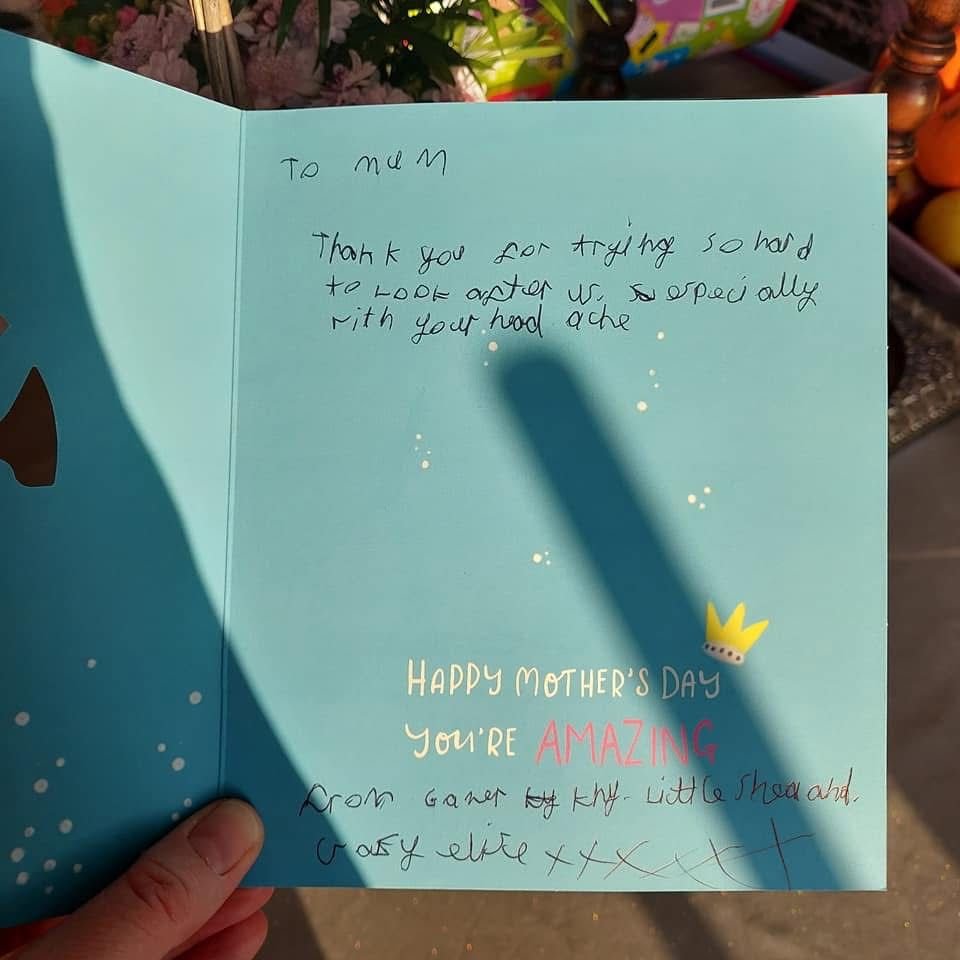 To mum
Thank you for trying so hard
to Look after us, especially
with your head ache
HAPPY MOTHER'S DAY
YOU'RE AMAZING
from Gamer Little Shea and.
crazy